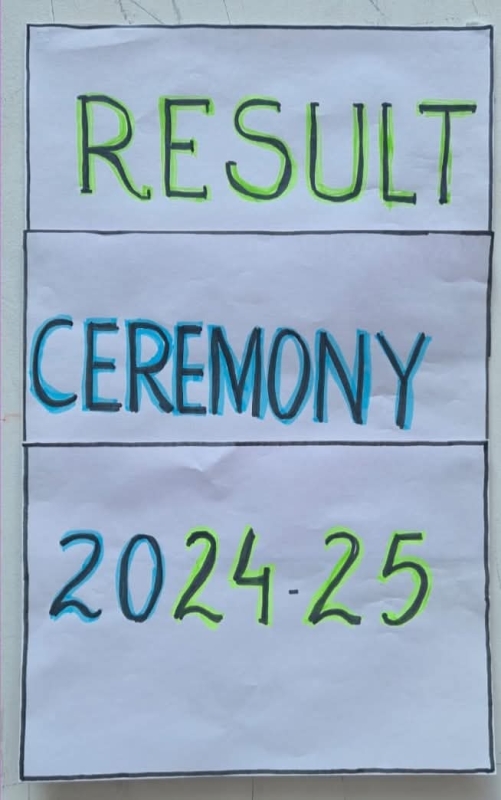 RESULT
CEREMONY
2024-25